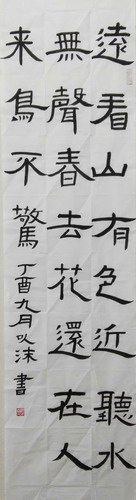 遠看山有色近聽水
無聲春去花還在人
來鳥不驚丁酉九月以沫書